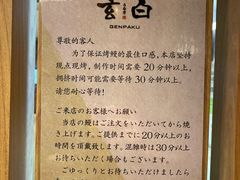 玄白
GENPAKU
尊敬的客人
为了保证烤鳗的最佳口感，本店坚持
现点现烤，制作时间需要 20 分钟以上，
拥挤时间可能需要等待 30 分钟以上。
请您耐心等待！
ご来店のお客様へお願い
当店の鰻はご注文をいただいてから焼
き上げます。ご提供までに20分以上のお
時間を頂戴致します。混雑時は30分以上
お待ちいただく場合もございます。
ごゆっくりとお待ちいただけましたら